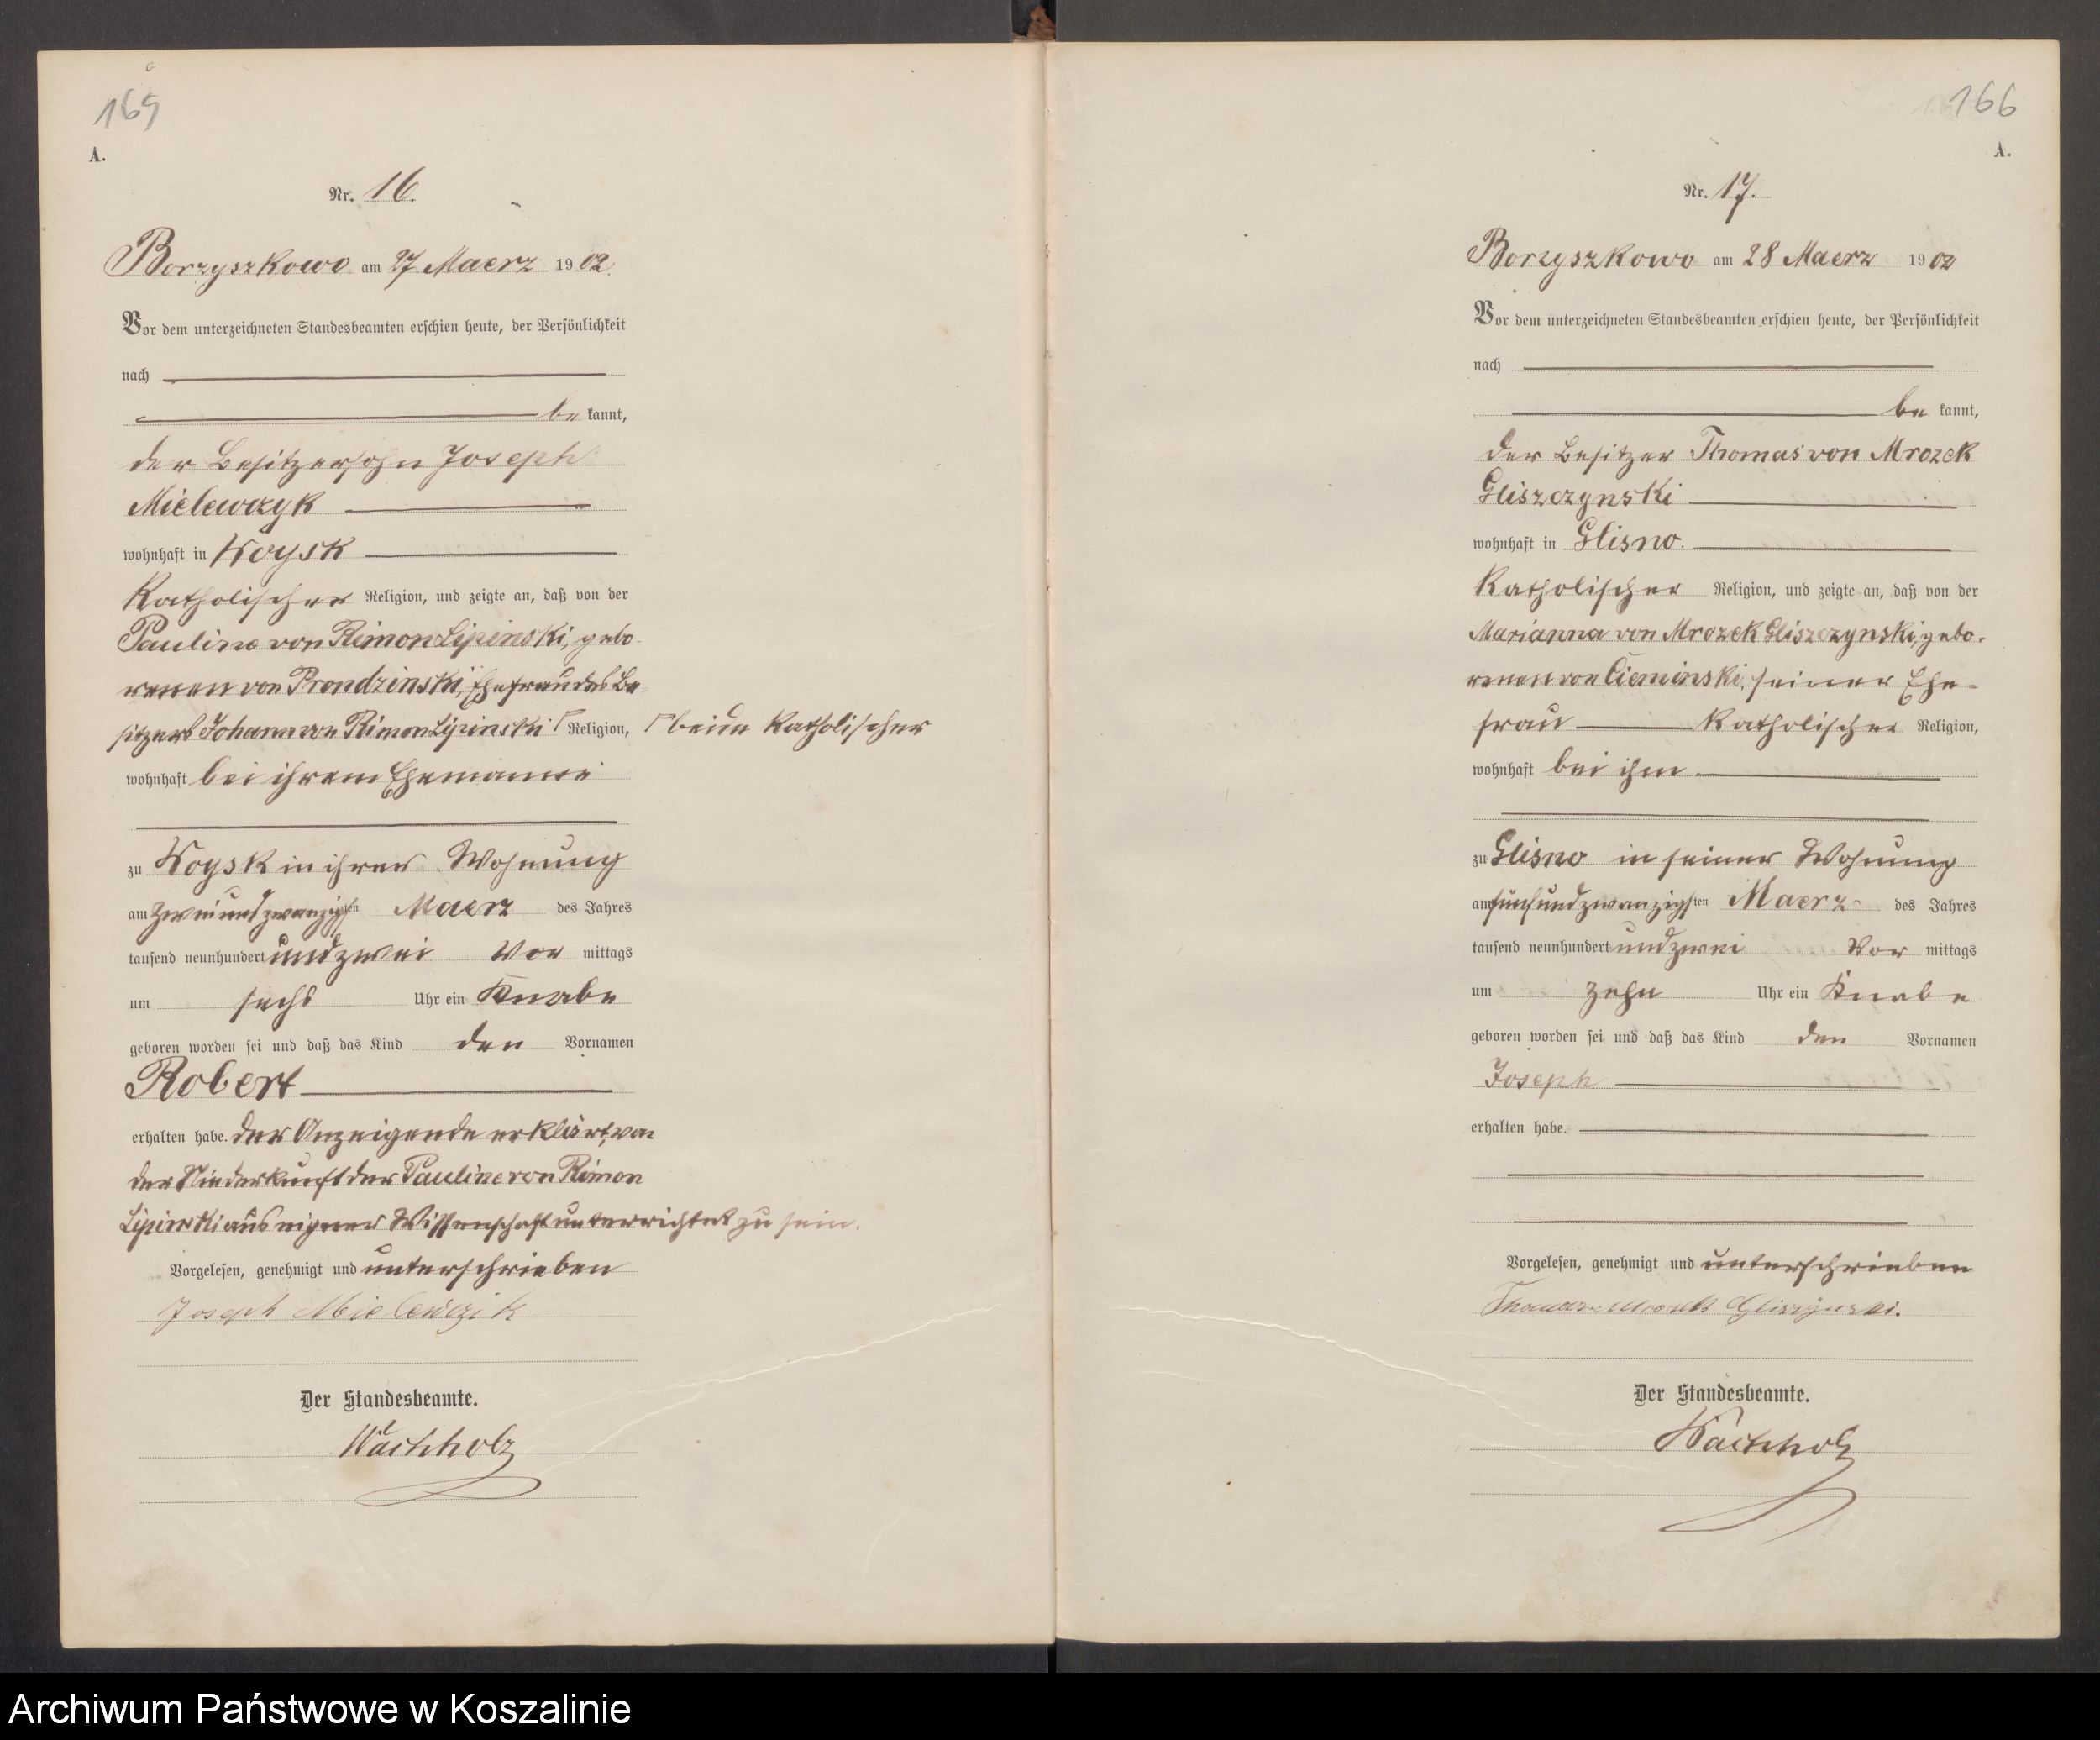 165
A.
Nr. 16.
Borzyszkowo am 27 Maerz 1902.
Vor dem unterzeichneten Standesbeamten erschien heute, der Persönlichkeit
nach
be kannt,
der Besitzersohn Joseph
Mielewczyk
wohnhaft in Woysk
Katholischer Religion, und zeigte an, daß von der
Pauline von Rimon Lipinski, gebo-
renen von Prondzinski, Ehefrau des Be-
sitzers Johann von Rimon Lipinski ┌ Religion, ┌ beide Katholischer
wohnhaft bei ihrem Ehemanne
zu Woysk in ihrer Wohnung
am zweiundzwanzigsten Maerz des Jahres
tausend neunhundert und zwei Vor mittags
um sechs Uhr ein Knabe
geboren worden sei und daß das Kind den Vornamen
Robert
erhalten habe. Der Anzeigende erklärt, von
der Niederkunft der Pauline von Rimon
Lipinski aus eigener Wissenschaft unterrichtet zu sein.
Vorgelesen, genehmigt und unterschrieben
Joseph Mielewczik
Der Standesbeamte.
Wachholz
166
A.
Nr. 17.
Borzyszkowo am 28 Maerz 1902
Vor dem unterzeichneten Standesbeamten erschien heute, der Persönlichkeit
nach
be kannt,
der Besitzer Thomas von Mrozek
Gliszczynski
wohnhaft in Glisno.
Katholischer Religion, und zeigte an, daß von der
Marianna von Mrozek Gliszczynski, gebo-
renen von Cieminski, seiner Ehe-
frau Katholischer Religion,
wohnhaft bei ihm
zu Glisno in seiner Wohnung
am fünfundzwanzigsten Maerz des Jahres
tausend neunhundert und zwei Vor mittags
um zehn Uhr ein Knabe
geboren worden sei und daß das Kind den Vornamen
Joseph
erhalten habe.
Vorgelesen, genehmigt und unterschrieben
Thomas
Der Standesbeamte.
Wachholz
Archiwum Państwowe w Koszalinie